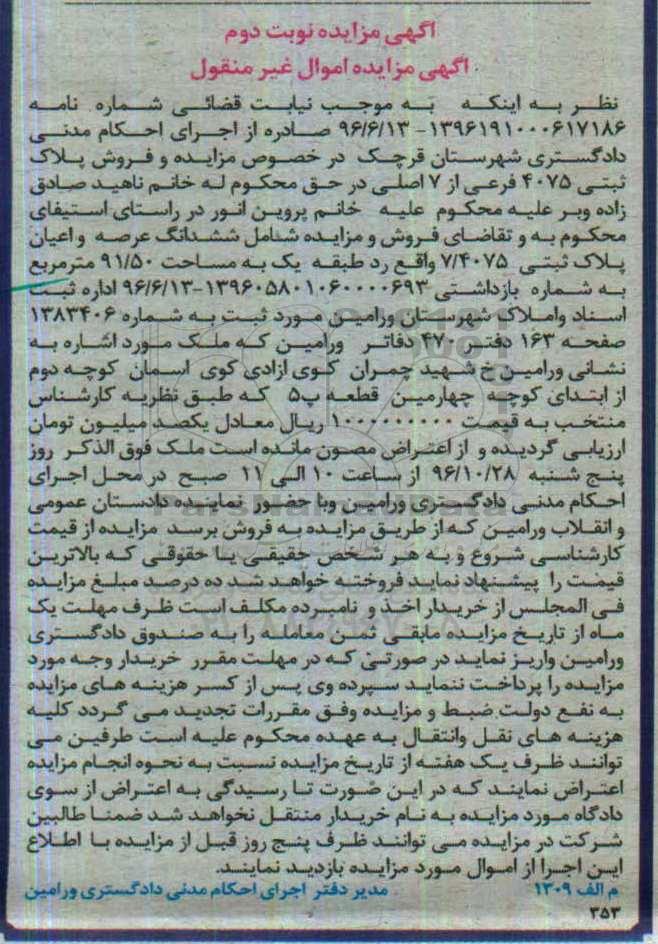 آگهی مزایده نوبت دوم
آگهی مزایده اموال غیر منقول
نظر به اینکه به موجب نیابت قضائی شماره نامه
۱۳۹۶۱۹۱۰۰۰۶۱۷۱۸۶ - ۹۶/۶/۱۳ صادره از اجرای احکام مدنی
دادگستری شهرستان قرچک در خصوص مزایده و فروش پلاک
ثبتی ۴۰۷۵ فرعی از ۷ اصلی در حق محکوم له خانم ناهید صادق
زاده وبر علیه محکوم علیه خانم پروین انور در راستای استیفای
محکوم به و تقاضای فروش و مزایده شامل ششدانگ عرصه و اعیان
پلاک ثبتی ۷/۴۰۷۵ واقع رد طبقه یک به مساحت ۹۱/۵۰ مترمربع
به شماره بازداشتی ۱۳۹۶۰۵۸۰۱۰۶۰۰۰۰۶۹۳-۹۶/۶/۱۳ اداره ثبت
اسناد واملاک شهرستان ورامین مورد ثبت به شماره ۱۳۸۳۴۰۶
صفحه ۱۶۳ دفتر ۴۷۰ دفاتر ورامین که ملک مورد اشاره به
نشانی ورامین خ شهید چمران کوی ازادی کوی اسمان کوچه دوم
از ابتدای کوچه چهارمین قطعه پ۵ که طبق نظریه کارشناس
منتخب به قیمت ۱۰۰۰۰۰۰۰۰۰ ریال معادل یکصد میلیون تومان
ارزیابی گردیده و از اعتراض مصون مانده است ملک فوق الذکر روز
پنج شنبه ۹۶/۱۰/۲۸ از ساعت ۱۰ الی ۱۱ صبح در محل اجرای
احکام مدنی دادگستری ورامین وبا حضور نماینده دادستان عمومی
و انقلاب ورامین که از طریق مزایده به فروش برسد مزایده از قیمت
کارشناسی شروع و به هر شخص حقیقی یا حقوقی که بالاترین
قیمت را پیشنهاد نماید فروخته خواهد شد ده درصد مبلغ مزایده
فی المجلس از خریدار اخذ و نامبرده مکلف است ظرف مهلت یک
ماه از تاریخ مزایده مابقی ثمن معامله را به صندوق دادگستری
ورامین واریز نماید در صورتی که در مهلت مقرر خریدار وجه مورد
مزایده را پرداخت ننماید سپرده وی پس از کسر هزینه های مزایده
به نفع دولت ضبط و مزایده وفق مقررات تجدید می گردد کلیه
هزینه های نقل وانتقال به عهده محکوم علیه است طرفین می
توانند ظرف یک هفته از تاریخ مزایده نسبت به نحوه انجام مزایده
اعتراض نمایند که در این صورت تا رسیدگی به اعتراض از سوی
دادگاه مورد مزایده به نام خریدار منتقل نخواهد شد ضمنا طالبین
شرکت در مزایده می توانند ظرف پنج روز قبل از مزایده با اطلاع
این اجرا از اموال مورد مزایده بازدید نمایند.
م الف ۱۳۰۹ مدیر دفتر اجرای احکام مدنی دادگستری ورامین
۳۵۳